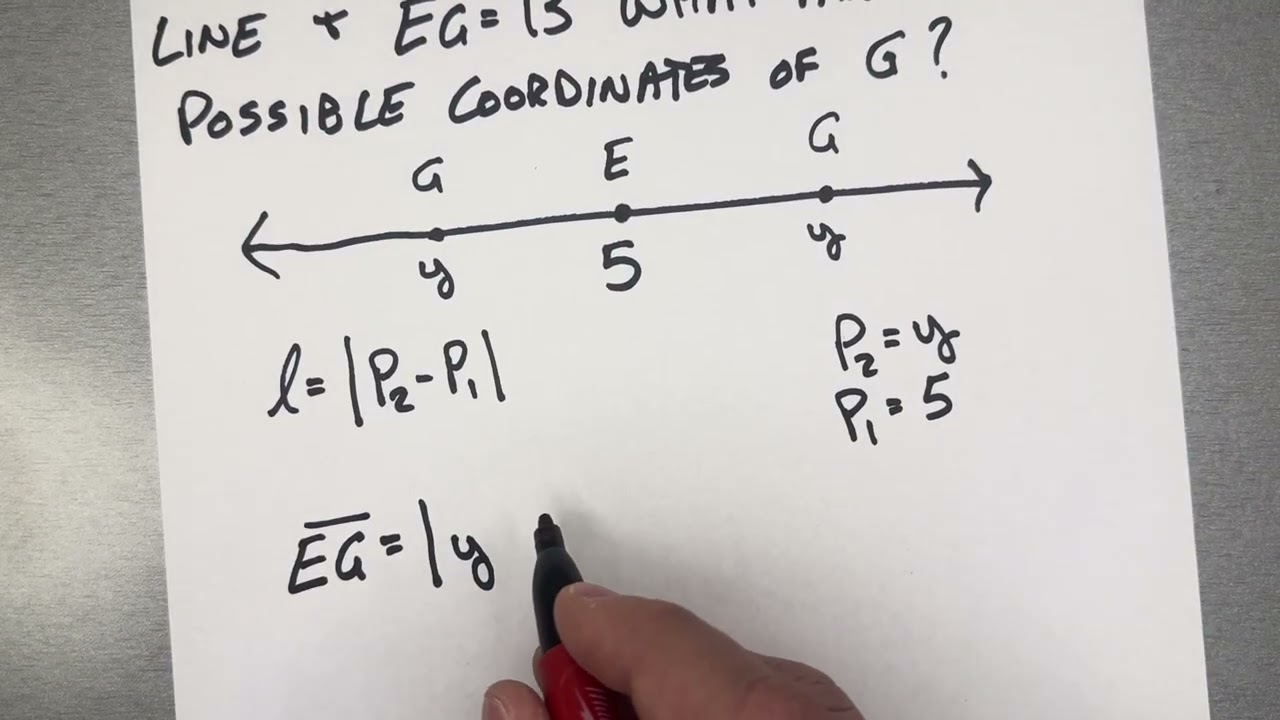 LINE + EG = 13 WHAT
POSSIBLE COORDINATES OF G?
G E G
y 5 y
l = |P₂ - P₁|
P₂ = y
P₁ = 5
E̅G̅ = | y